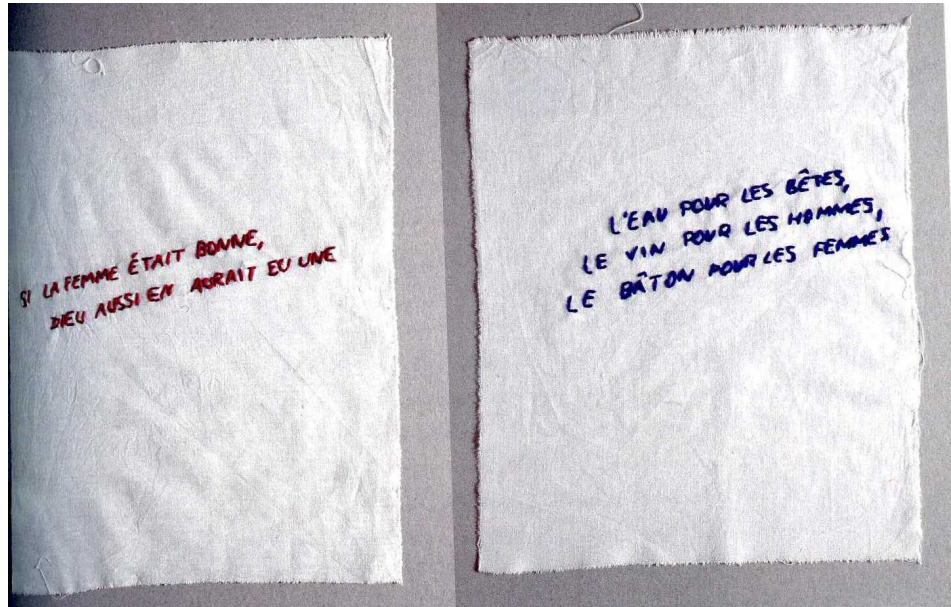 SI LA FEMME ÉTAIT BONNE,
DIEU AUSSI EN AURAIT EU UNE
L'EAU POUR LES BÊTES,
LE VIN POUR LES HOMMES,
LE BÂTON POUR LES FEMMES